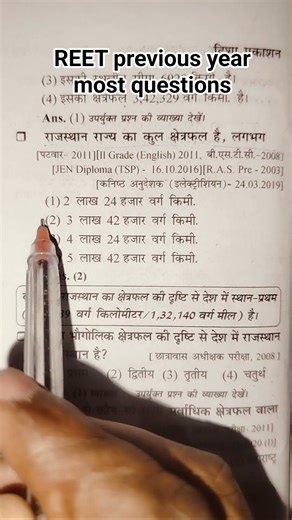 REET previous year
most questions
दिशा प्रकाशन
(3) इसकी स्थलीय सीमा किमी. है।
(4) इसका क्षेत्रफल 3,42,329 वर्ग किमी. है।
Ans. (1) उपर्युक्त प्रश्न की व्याख्या देखें।
राजस्थान राज्य का कुल क्षेत्रफल है, लगभग
[पटवार- 2011][II Grade (English) 2011, बी.एस.टी.सी.-2008]
[JEN Diploma (TSP) - 16.10.2016][R.A.S. Pre - 2003]
[कनिष्ठ अनुदेशक (इलेक्ट्रीशियन)- 24.03.2019]
(1) 2 लाख 24 हजार वर्ग किमी.
(2) 3 लाख 42 हजार वर्ग किमी.
4 लाख 24 हजार वर्ग किमी.
5 लाख 42 हजार वर्ग किमी.
(2)
राजस्थान का क्षेत्रफल की दृष्टि से देश में स्थान-प्रथम
वर्ग किलोमीटर/1,32,140 वर्ग मील) है।
भौगोलिक क्षेत्रफल की दृष्टि से देश में राजस्थान
स्थान है? [छात्रावास अधीक्षक परीक्षा, 2008]
प्रथम (2) द्वितीय (3) तृतीय (4) चतुर्थ
उपर्युक्त प्रश्न की व्याख्या देखें।
सर्वाधिक क्षेत्रफल वाला
2011]